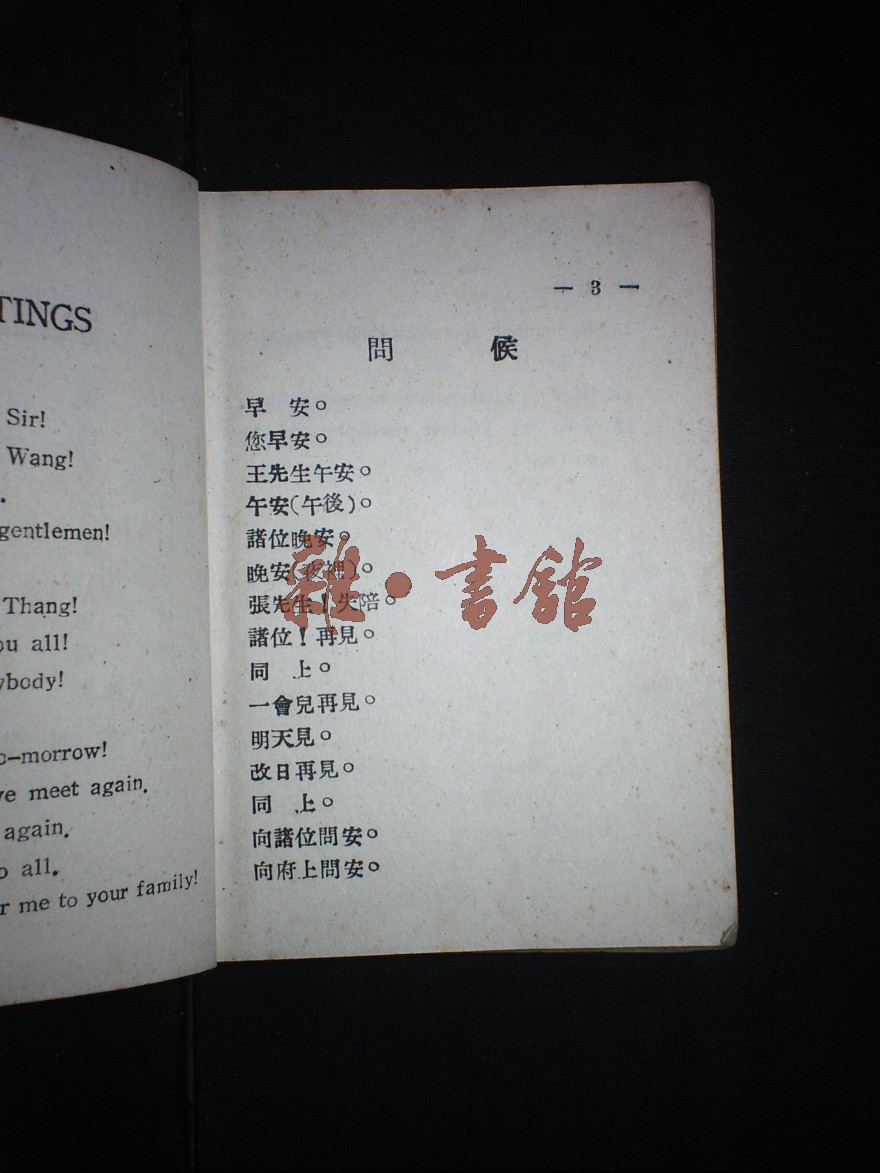 TINGS
Sir!
Wang!
.
gentlemen!
Thang!
ou all!
ybody!
o-morrow!
ve meet again.
again.
o all.
r me to your family!
— 3 —
問 候
早 安。
您早安。
王先生午安。
午安(午後)。
諸位晚安。
晚安(夜裡)。
張先生！失陪。
諸位！再見。
同 上。
一會兒再見。
明天見。
改日再見。
同 上。
向諸位問安。
向府上問安。
雜·書館